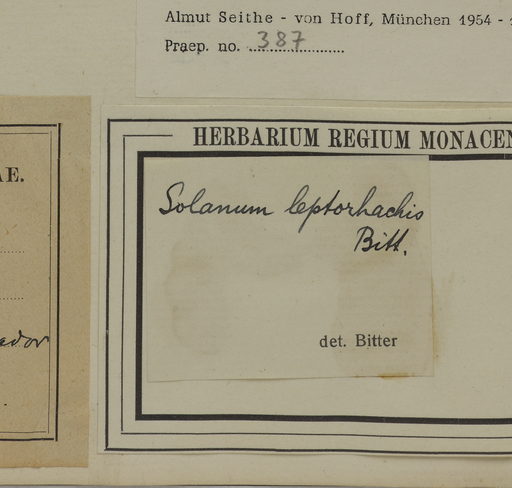 Almut Seithe - von Hoff, München 1954 -
Praep. no. 387
HERBARIUM REGIUM MONACEN
AE.
Solanum leptorhachis
Bitt.
ador
det. Bitter